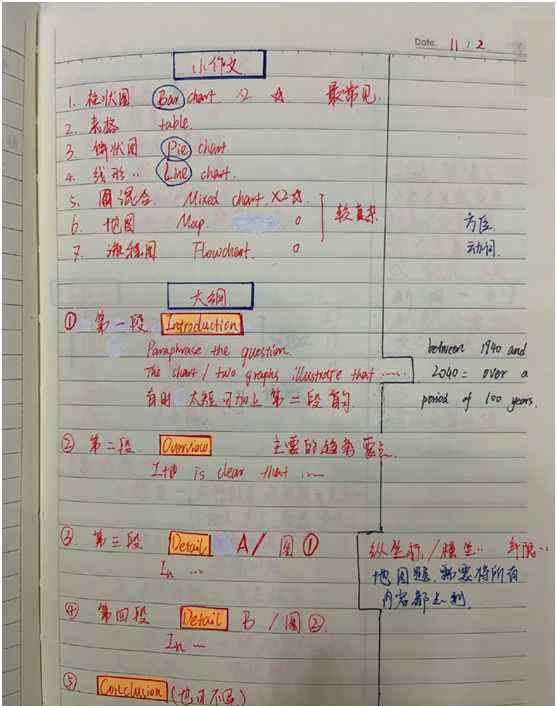 Date. 11 / 2
小作文
1. 柱状图 Bar chart ×2 ☆ 最常见.
2. 表格 table.
3. 饼状图 Pie chart
4. 线形·· Line chart.
5. 图混合. Mixed chart ×2 ☆.
6. 地图 Map. 0
7. 流程图 Flowchart. 0
较复杂
方位
动词.
大纲
① 第一段 Introduction
Paraphrase the question.
The chart / two graphs illustrate that ……
自时 太短可加上第二段首句.
between 1940 and
2040 = over a
period of 100 years.
② 第二段. Overview 主要的趋势
It is clear that ……
③ 第三段 Detail A / 图①
In …
纵坐标 / 横坐·· 年限··
地图题, 需要将所有
内容都
④ 第四段 Detail B / 图②.
In …
⑤ Conclusion (也可不写)